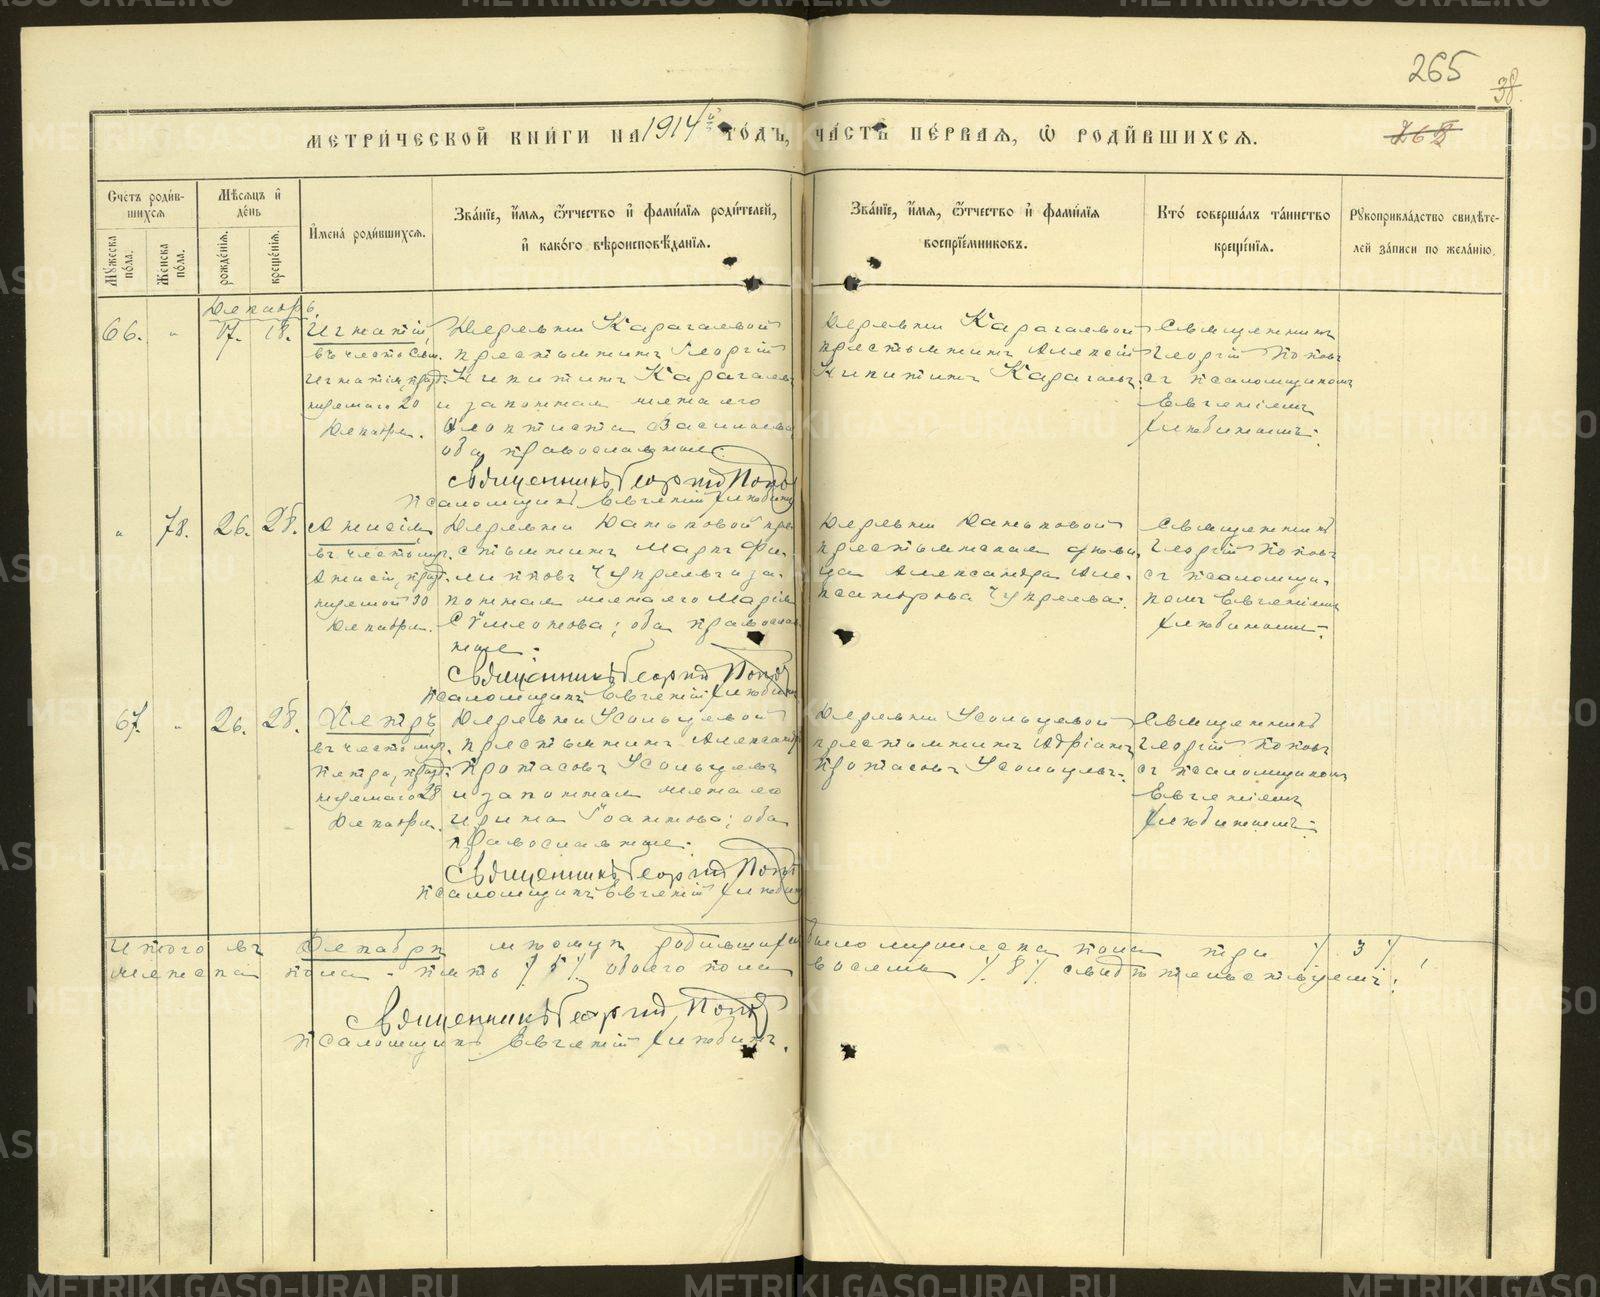 265
38.
МЕТРИ́ЧЕСКОЙ КНИ́ГИ НА 1914й ГО́ДЪ, ЧА́СТЬ ПЕ́РВАЯ, Ѡ РОДИ́ВШИХСЯ.
Сче́тъ роди́вшихся
Мѣсяцъ и де́нь
Мꙋжеска по́ла.
Женска по́ла.
рожде́нія.
креще́нія.
Имена́ роди́вшихся.
Зва́ніе, имя, ѻтчество и фами́лія роди́телей,
и како́го вѣроисповѣ́данія.
Зва́ніе, имя, ѻтчество и фами́лія
воспріе́мниковъ.
Кто́ соверша́лъ та́инство
креще́нія.
Рꙋкоприкла́дство свидѣ́те-
лей за́писи по жела́нію.
Декабрь.
66.
"
17.
18.
Игнатій
въ честь Свщ.
Игнатія, празд-
нуемаго 20
Декабря.
Деревни Карагаевой
крестьянинъ Георгій
Никитинъ Карагаевъ
и законная жена его
Васильева
оба православные.
Священникъ Георгій Поповъ
Псаломщикъ Евгеній Любимъ
Деревни Карагаевой
крестьянинъ Алексій
Никитинъ Карагаевъ.
Священникъ
Георгій Поповъ
съ псаломщикомъ
Евгеніемъ
"
78.
26.
28.
Анисія
въ честь муч.
Анисіи, празд-
нуемой 30
Декабря.
Деревни кре-
стьянинъ Маркъ Фи-
липповъ Чупревъ и за-
конная жена его Марія
Сѵмеонова; оба православ-
ные.
Священникъ Георгій Поповъ
Псаломщикъ Евгеній
Деревни
крестьянская дѣви-
ца Александра Але-
ксандрова Чупрева.
Священникъ
Георгій Поповъ
съ псаломщи-
комъ Евгеніемъ
67.
"
26.
28.
Петръ
въ честь муч.
Петра, празд-
нуемаго 28
Декабря.
Деревни Усольцевой
крестьянинъ Александръ
Протасовъ Усольцевъ
и законная жена его
Ирина Іоаннова; оба
православные.
Священникъ Георгій Поповъ
Псаломщикъ Евгеній
Деревни Усольцевой
крестьянинъ Адріанъ
Протасовъ Усольцевъ.
Священникъ
Георгій Поповъ
съ псаломщикомъ
Евгеніемъ
Итого въ Декабрѣ мѣсяцѣ родившихся было мужеска пола три /3/,
женска пола - пять /5/ обоего пола восемь /8/ свидѣтельствуемъ:
Священникъ Георгій Поповъ
Псаломщикъ Евгеній